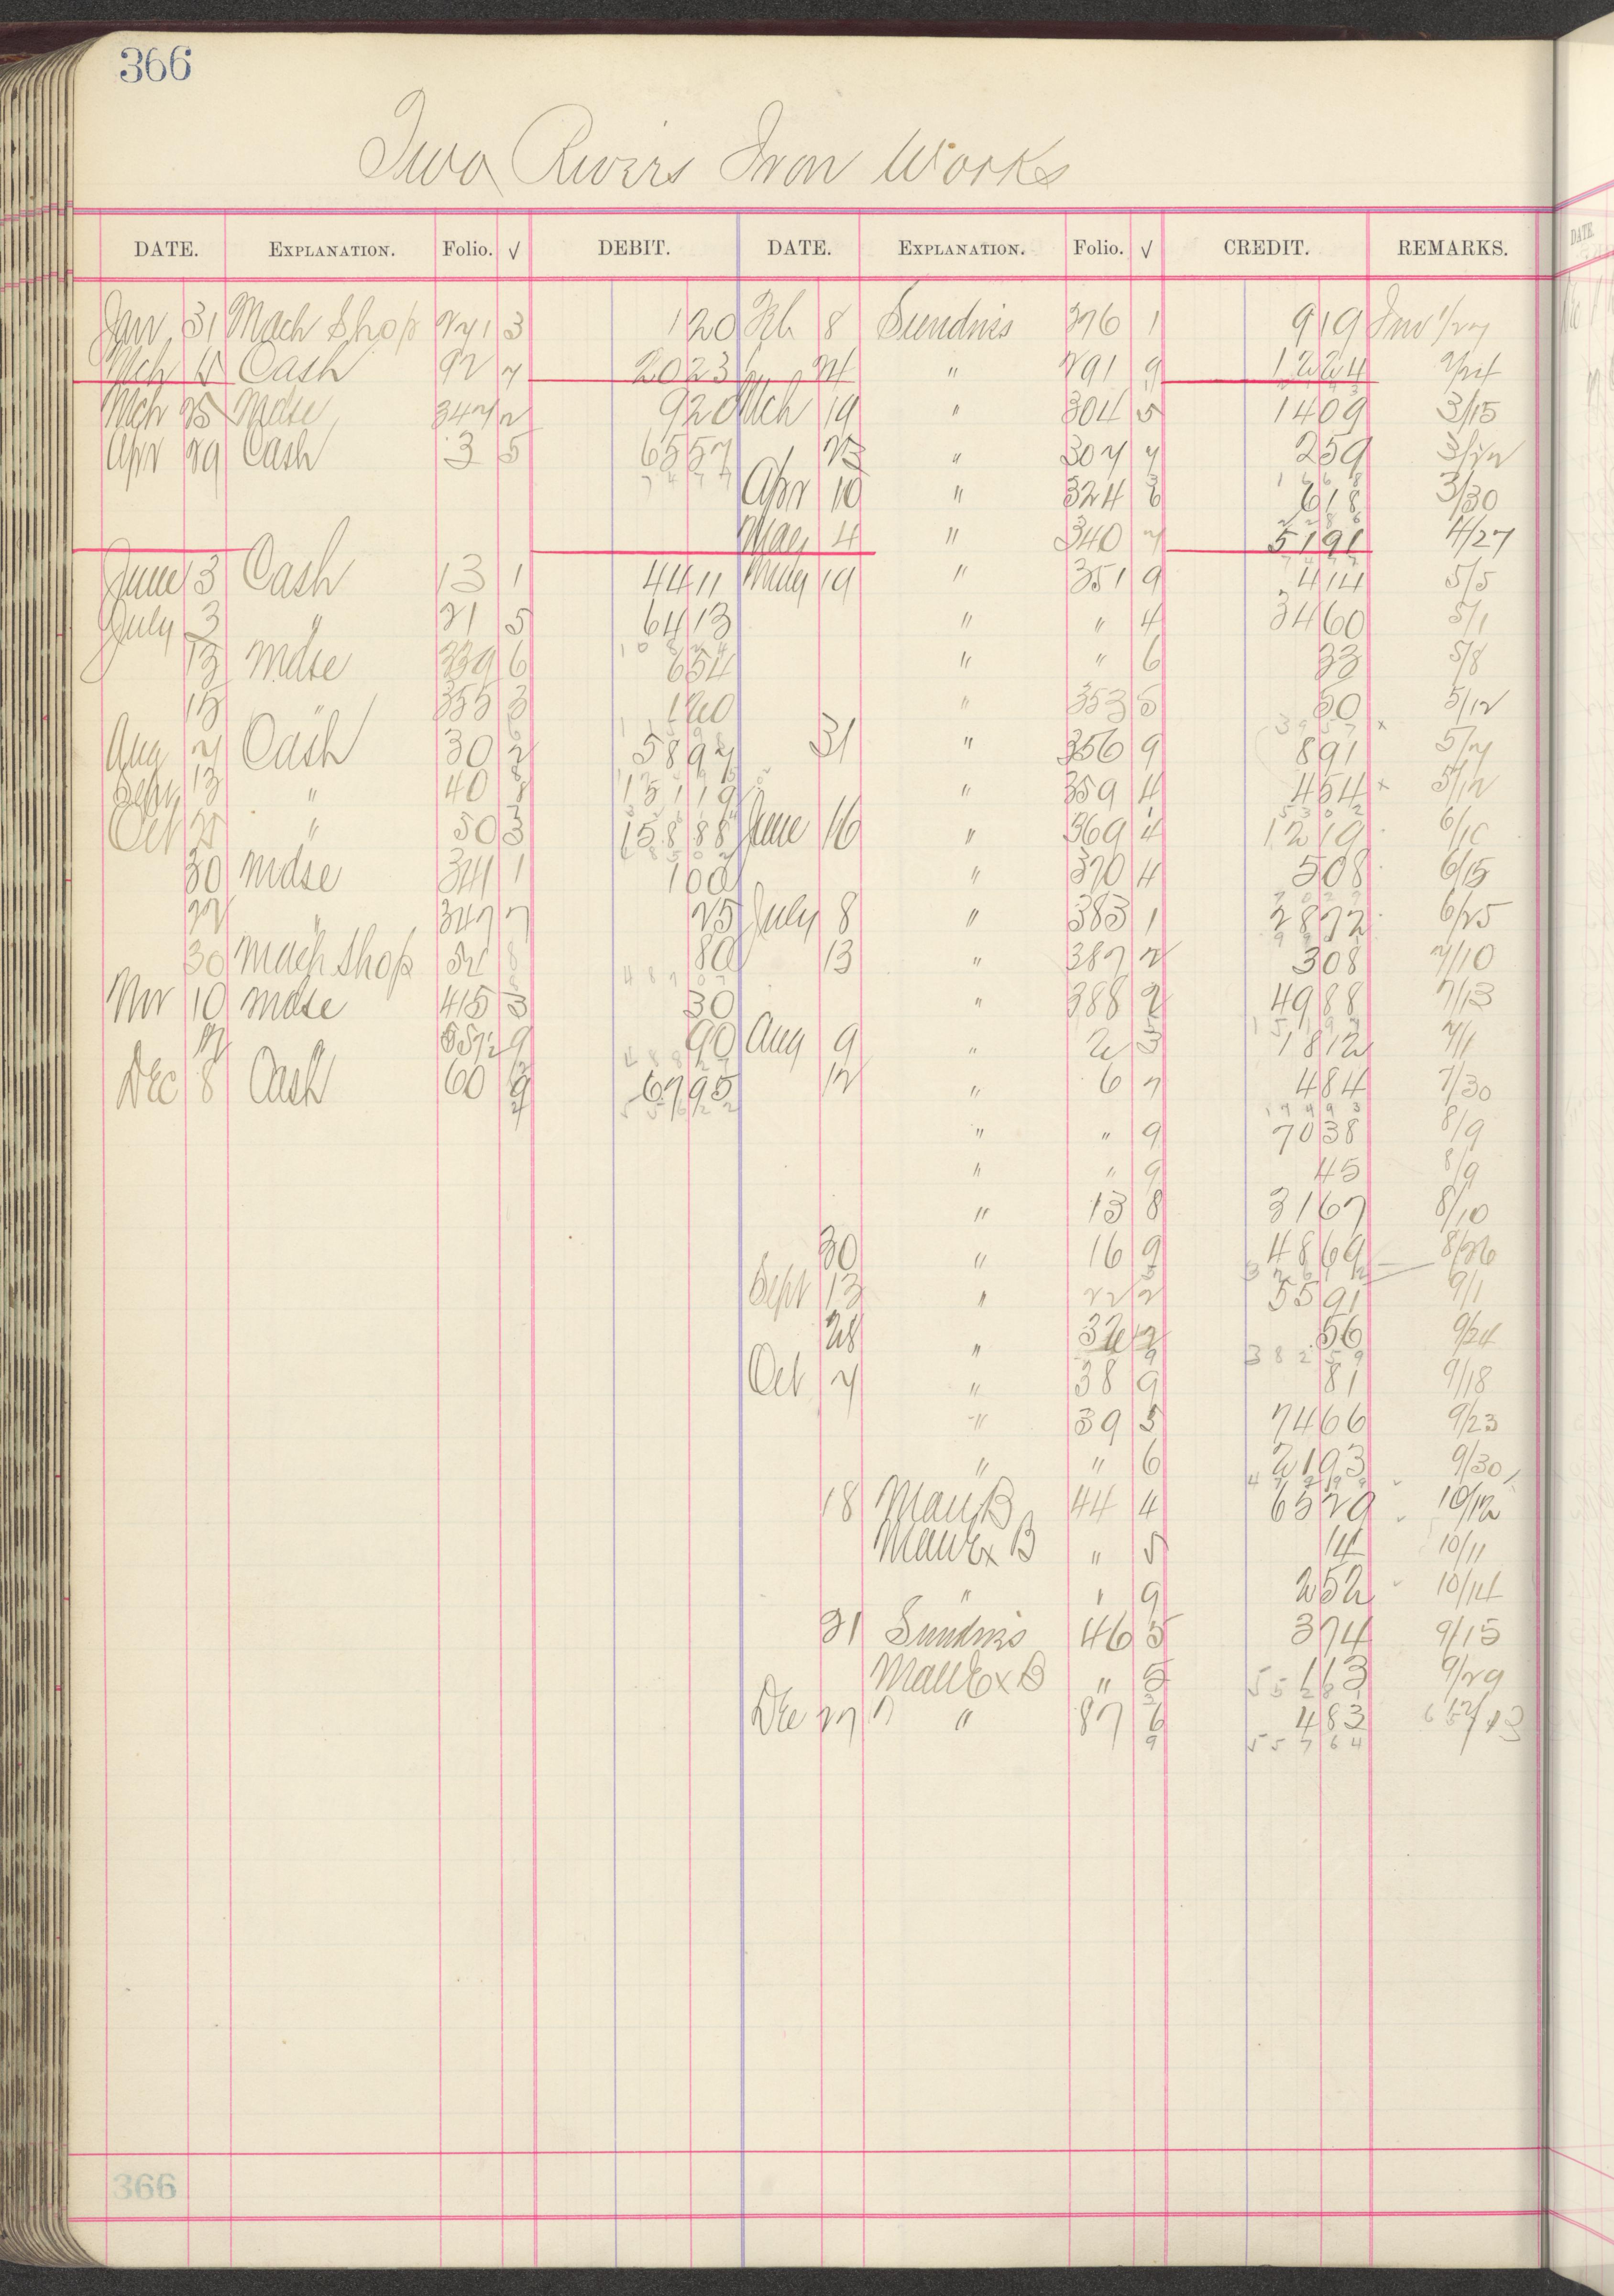 366
Two Rivers Iron Works
DATE. EXPLANATION. Folio. √ DEBIT. DATE. EXPLANATION. Folio. √ CREDIT. REMARKS.
Jan 31 Mach Shop 271 3 1 20 Feb 8 Sundries 276 1 9 19 Inv 1/27
Mch 15 Cash 92 7 20 23 24 " 291 9 12 24 2/24
Mch 25 Mdse 347 2 9 20 Mch 19 " 304 5 14 09 3/15
Apr 29 Cash 3 5 65 57 25 " 307 7 2 59 3/22
Apr 10 " 324 8 6 18 3/30
May 4 " 340 7 51 91 4/27
June 3 Cash 13 1 44 11 May 19 " 351 9 4 14 5/5
July 3 " 21 5 64 13 " " 4 34 60 5/1
13 Mdse 339 6 6 54 " " 6 33 5/8
15 " 355 3 1 20 " 353 5 50 5/12
Aug 7 Cash 30 2 58 97 31 " 356 9 8 91 5/27
Sept 13 " 40 8 151 19 " 359 4 4 54 5/12
Oct 25 " 50 3 158 88 June 16 " 369 4 12 19 6/10
30 Mdse 341 1 1 00 " 370 4 5 08 6/15
22 " 347 7 25 July 8 " 383 1 28 72 6/25
30 Mach Shop 52 8 80 13 " 387 2 3 08 7/10
Nov 10 Mdse 415 3 30 " 388 2 49 88 7/13
17 " 557 9 90 Aug 9 " 2 3 18 12 7/1
Dec 8 Cash 60 9 67 95 12 " 6 7 4 84 7/30
" " 9 70 38 8/9
" " 9 45 8/9
" 13 8 31 67 8/10
30 " 16 9 48 69 8/26
Sept 13 " 22 2 55 91 9/1
28 " 32 2 56 9/24
3 8 2 5 9
Oct 7 " 38 9 81 9/18
" 39 5 74 66 9/23
" " 6 21 93 9/30
18 Man B 44 4 65 29 10/12
Man Ex B " 5 14 10/11
" " 9 2 52 10/14
31 Sundries 46 5 3 74 9/15
Man Ex B " 5 1 63 9/29
Dec 27 " " 87 6 4 83 12/13
5 5 7 6 4
366